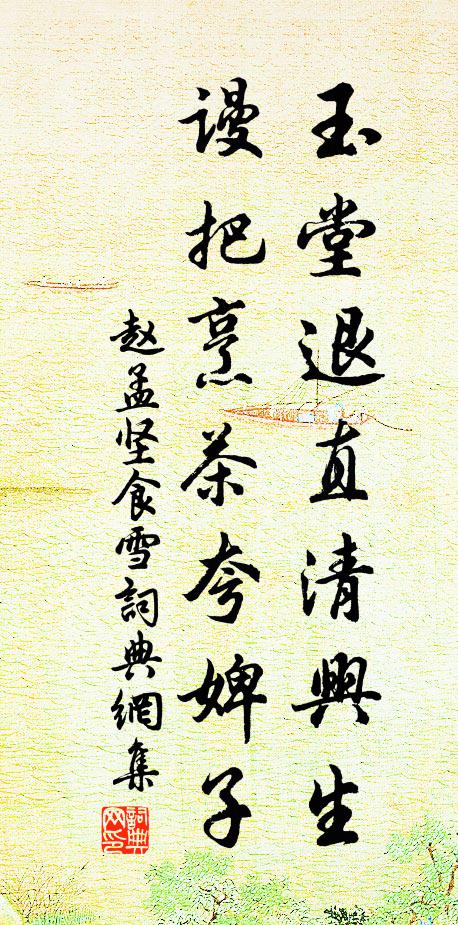 玉堂退直清興生
谩把烹茶夸婢子
赵孟坚食雪詞典網集
詞典网印